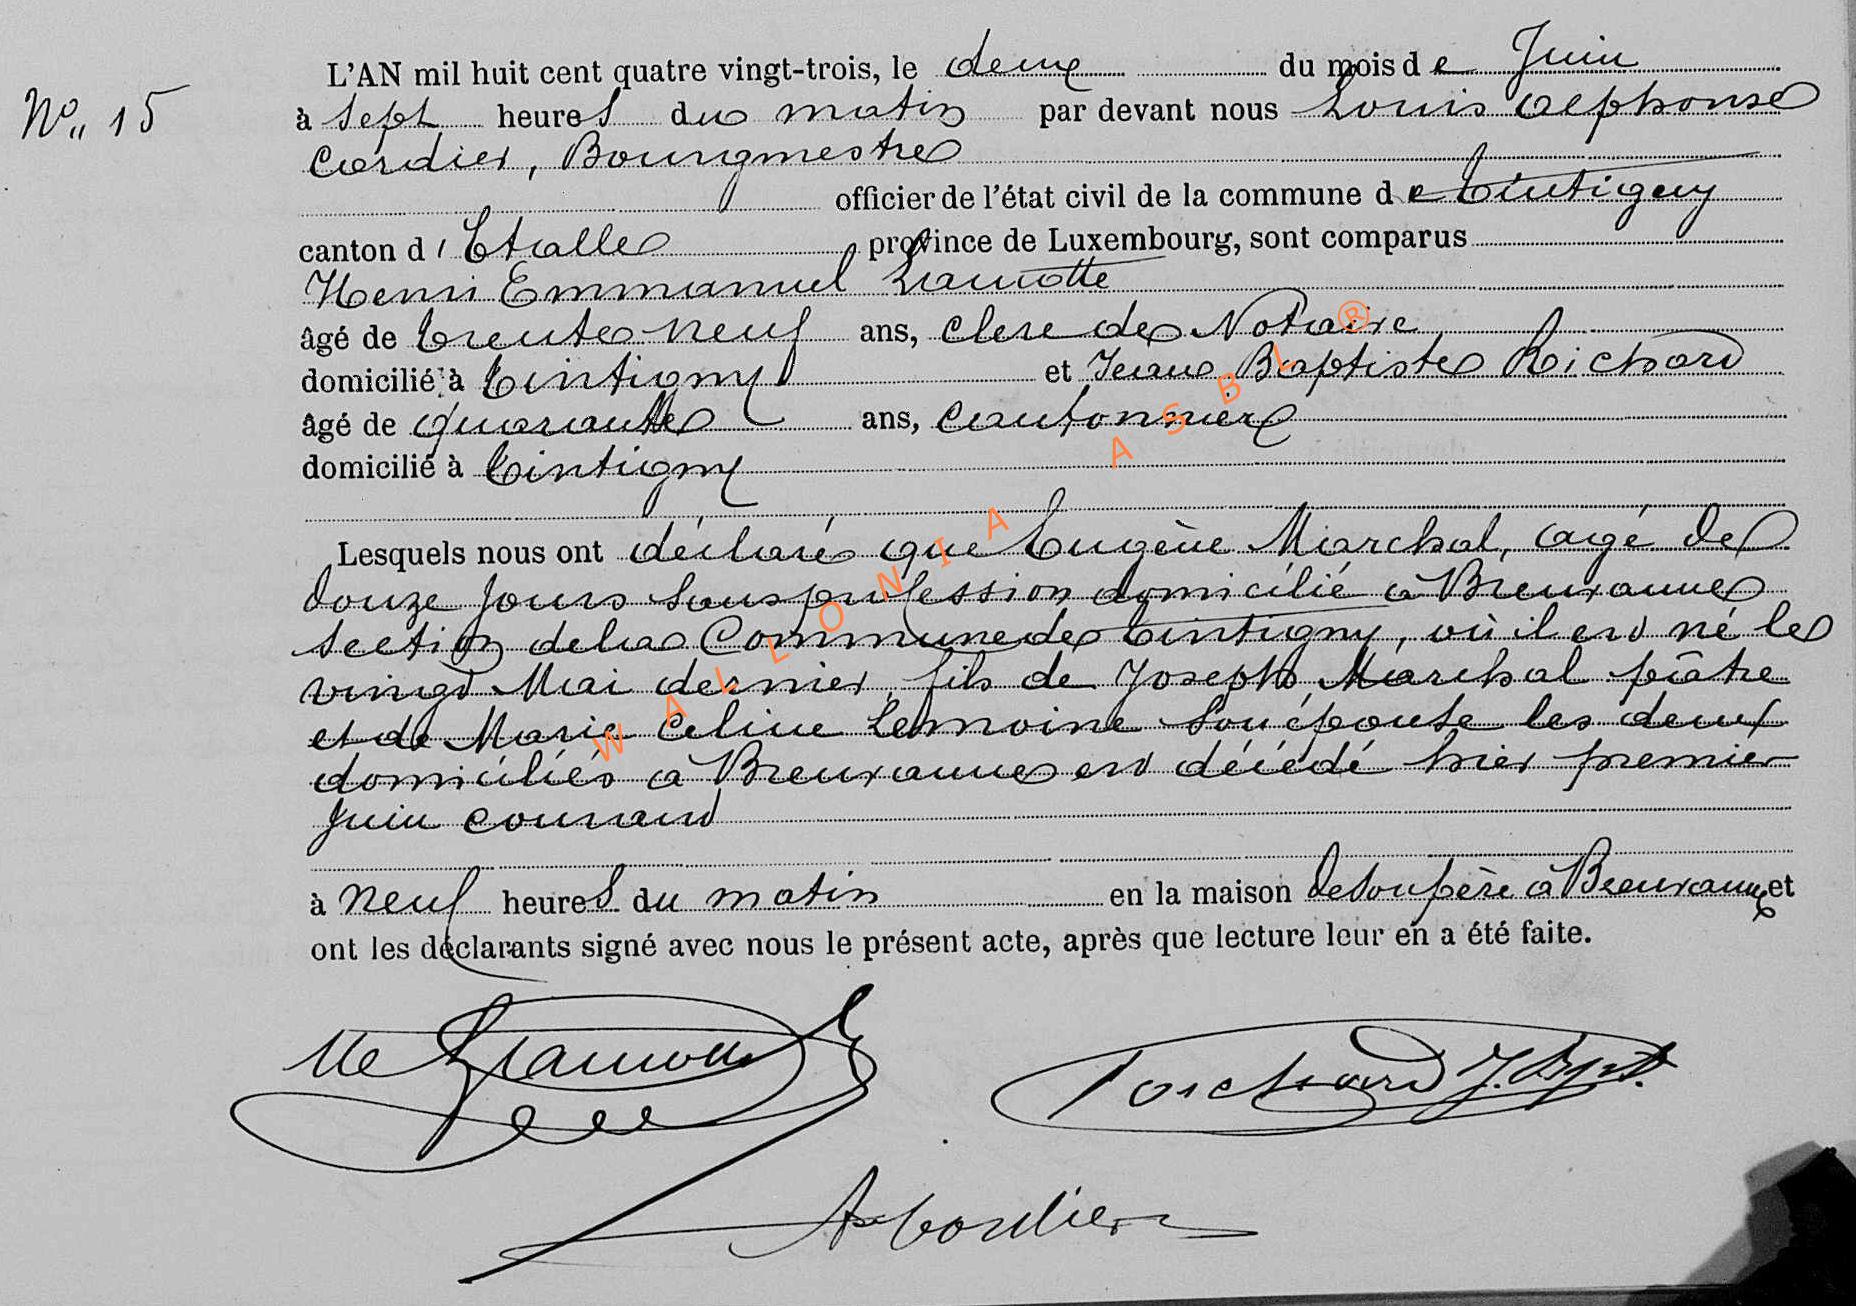 No 15
L'AN mil huit cent quatre vingt-trois, le deux du mois de Juin
à sept heures du matin par devant nous Louis Alphonse
Cordier, Bourgmestre
officier de l'état civil de la commune de Tintigny
canton d'Etalle province de Luxembourg, sont comparus
Henri Emmanuel Lamotte
âgé de trente neuf ans, clerc de Notaire
domicilié à Tintigny et Jean Baptiste Richard
âgé de quarante ans, cantonnier
domicilié à Tintigny
Lesquels nous ont déclaré que Eugène Marchal, agé de
douze jours sans profession domicilié à Breuvanne
section de la Commune de Tintigny, où il est né le
vingt Mai dernier, fils de Joseph Marchal pâtre
et de Marie Celine Lemoine son épouse les deux
domiciliés à Breuvanne est décédé hier premier
Juin courant
à neuf heures du matin en la maison de son père à Breuvanne et
ont les déclarants signé avec nous le présent acte, après que lecture leur en a été faite.
Lamotte
J. Bpt.
A Cordier
WALLONIA ASBL ®